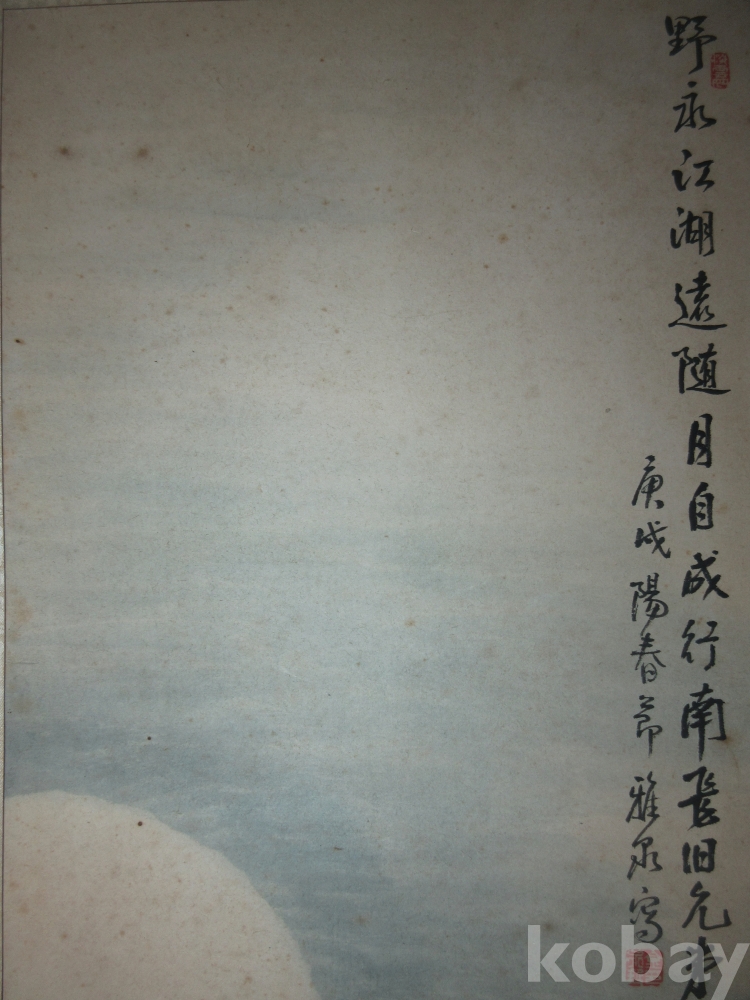 野永江湖遠随月自成行南長旧
庚戌陽春節雅泉寫
kobay